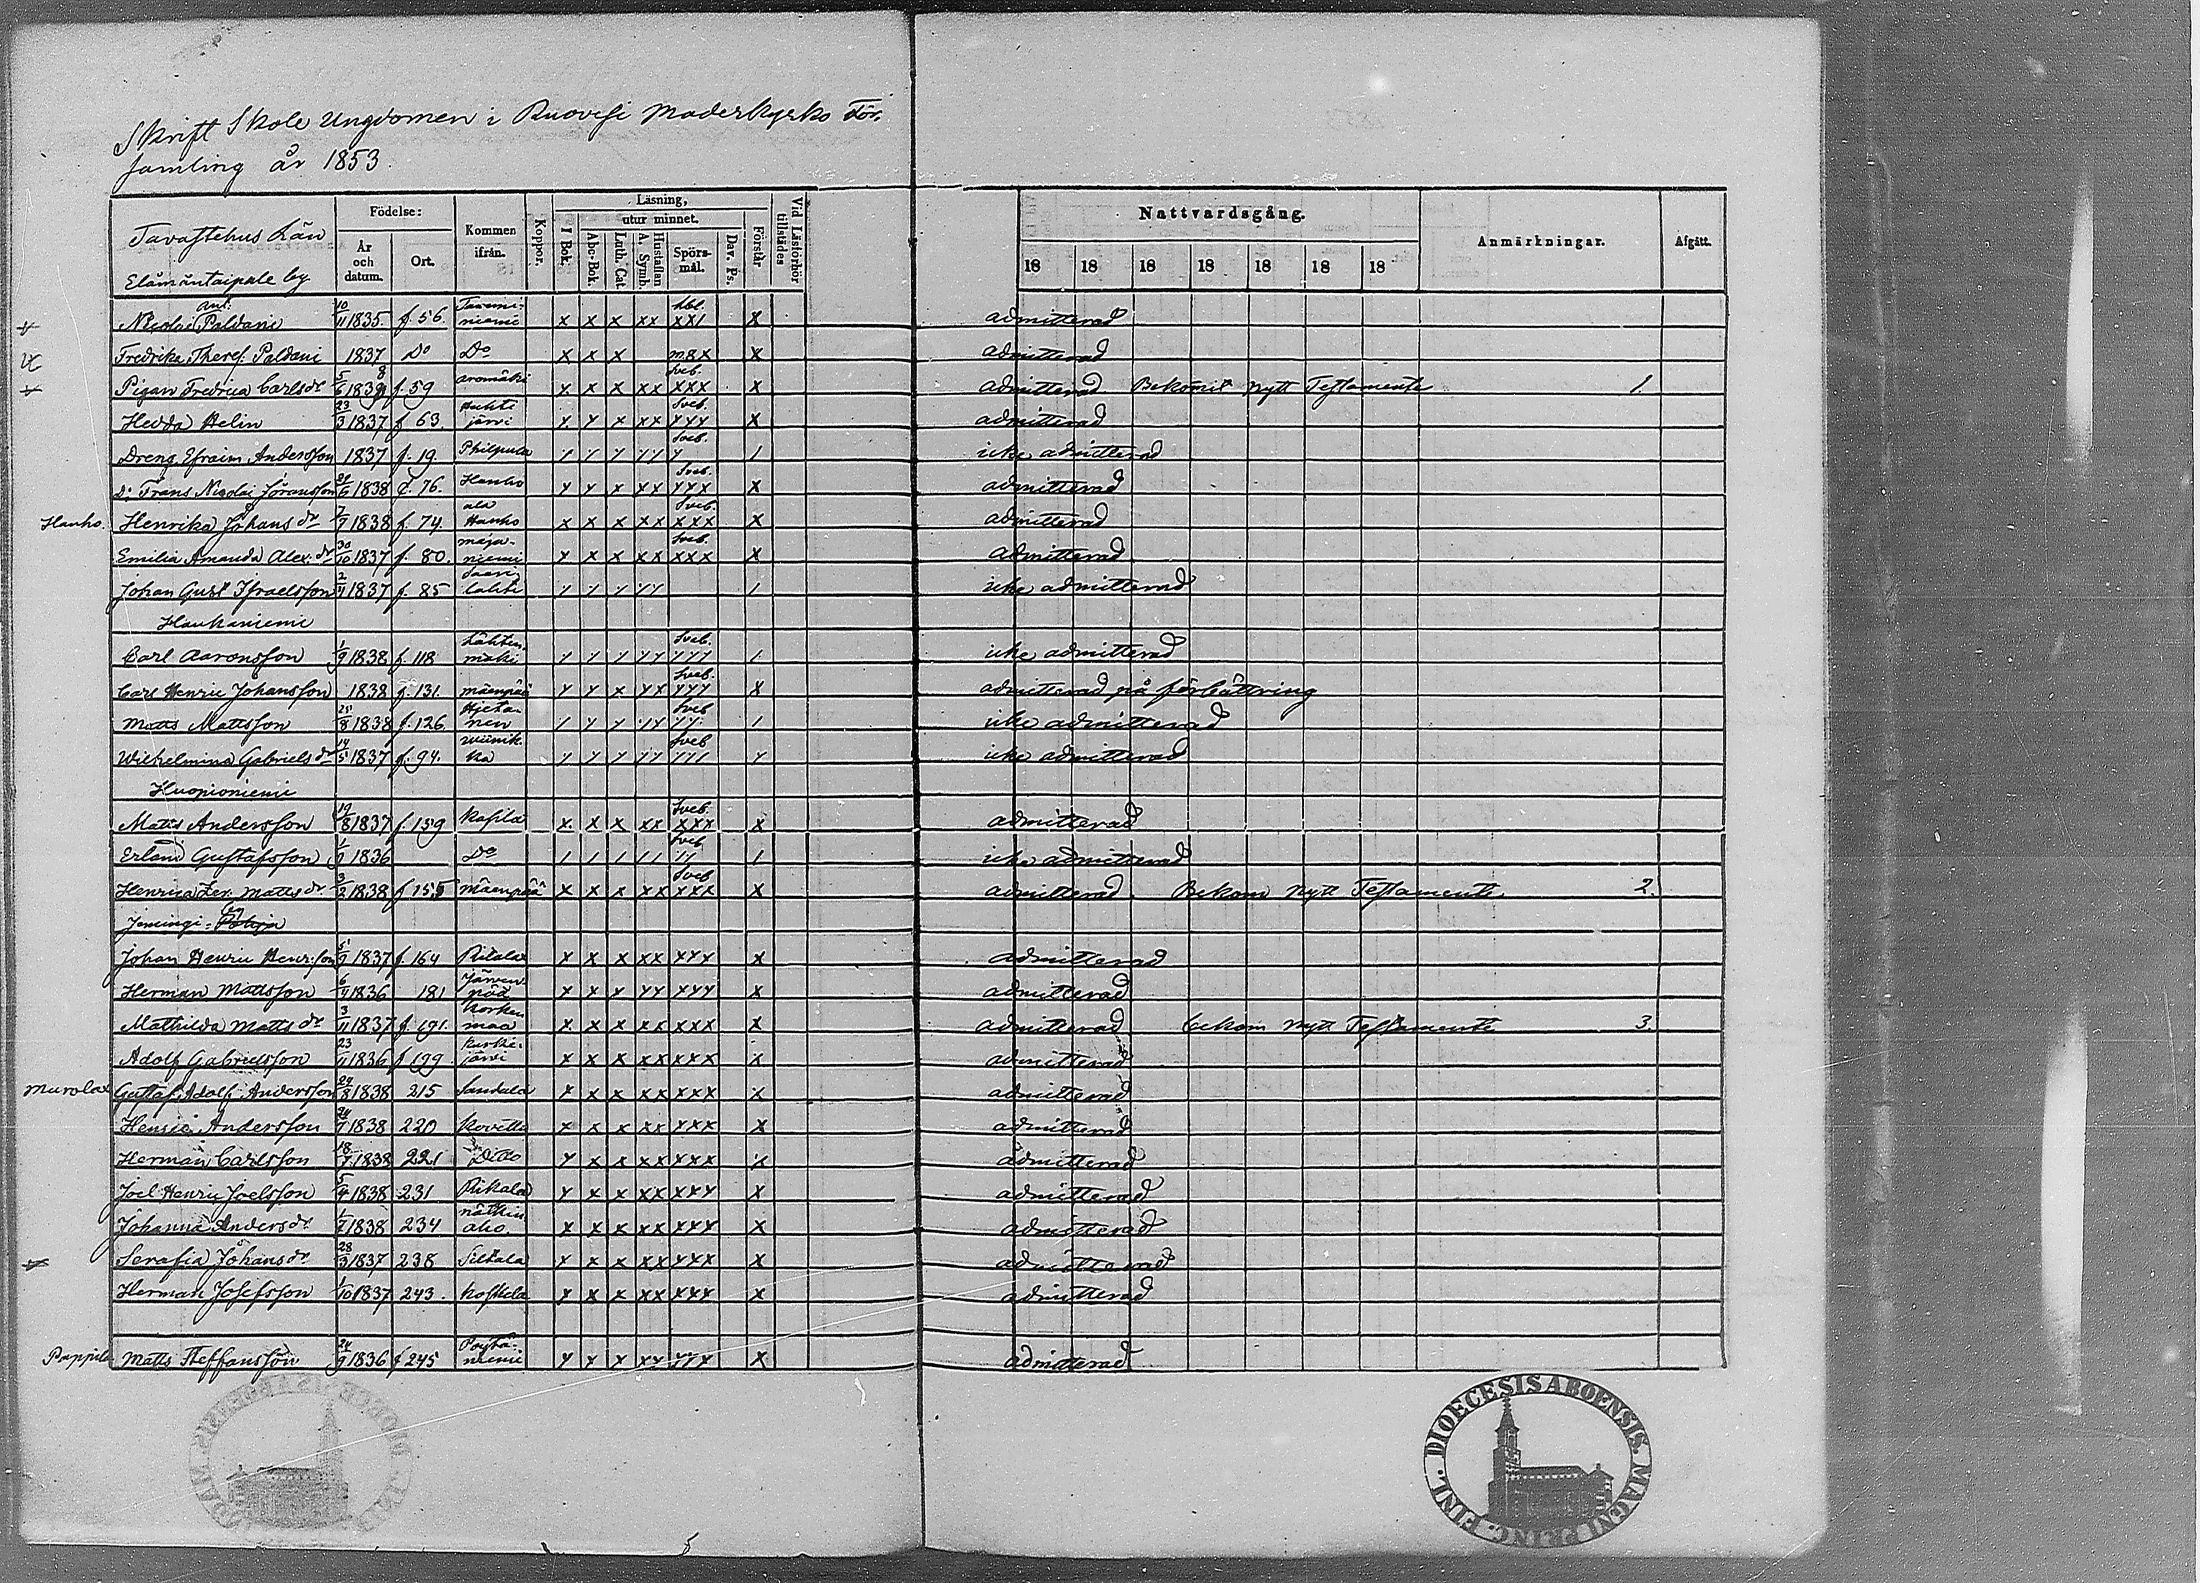 Skrift Skole Ungdomen i Ruovesi Moderkyrko För,
samling år 1853.
Tavastehus Län
Elämäntaipale by
Födelse:
År och datum.
Ort.
Kommen ifrån.
Koppor.
Läsning,
utur minnet.
I Bok.
Abc-Bok.
Luth. Cat.
Hustaflan A. Symb.
Spörs-mål.
Dav. Ps.
Förstår
Vid Läsförhör tillstädes
Nattvardsgång.
18 18 18 18 18 18 18
Anmärkningar.
Afgått.
Nicolai Ant: Paldani 10/11 1835. f. 56. x x x xx xx1 x admitterad
Fredrika Theres. Paldani 1837 Do Do x x x x admitterad
Pigan Fredrica Carlsdr 5/6 1839 8 f. 59 aromäki x x x xx Sveb. xxx x admitterad Bekomit nytt Testamente 1.
Hedda Helin 23/3 1837 f 63 Huhti järvi y y x xx Sveb. yyy x admitterad
Dreng. Efraim Andersson 1837 f. 19 Philpula Sveb. icke admitterad
D: Frans Nicolai Jöransson 1838 f. 76. Hanho y y x xx Sveb. yyx x admitterad
Hanho. Henrika Johansdr 7/7 1838 f. 74. ala Hanho x x x xx Sveb. xxx x admitterad
Emilia Amanda Alex.dr 30/10 1837 f. 80. maja-niemi y x x xx Sveb. xxx x admitterad
Johan Gust Israelsson 1837 f. 85 Saari lahti icke admitterad
Haukaniemi
Carl Aaronsson 1/9 1838 f. 118 Lähten mäki Sveb. icke admitterad
Carl Henric Johansson 1838 f. 131. mäenpää y y x xx Sveb. yyy x admitterad på förbättring
Matts Mattsson 1838 f. 126. Hjeta-nen Sveb icke admitterad
Wilhelmina Gabrielsdr 14/5 1837 f. 94. Wiinik-ka Sveb icke admitterad
Huopioniemi
Matts Andersson 19/8 1837 f. 159 Kasila x x x xx Sveb. xxx x admitterad
Erland Gustafsson 1836 Do Sveb icke admitterad
Henrica Mattsdr 3/2 1838 f 155 Mäenpää x x x xx Sveb xxx x admitterad. Bekom nytt Testamente. 2.
Jämingi-by
Johan Henric Henr:son 1837 f. 164 x x x xx xyx x admitterad
Herman Mattsson 6/11 1836 181 Järven pää x x x yy xyy x admitterad
Mathilda Mattsdr 3/11 1837 f. 191. Korken maa x x x xx xxx x admitterad bekom nytt Testamente 3.
Adolf Gabrielsson 23/11 1836 f 199 järvi x x x xx xxx x admitterad
Murola Gustaf Adolf Andersson 29/8 1838 215 Sandala x x x xx xxx x admitterad
Henric Andersson 24/7 1838 220 Kovitta x x x xx xxx x admitterad
Herman Carlsson 18/7 1838 221 Ditto y x x xx xxx x admitterad
Joel Henric Joelsson 5/4 1838 231 y x x xx xxy x admitterad
Johanna Andersdr 1/7 1838 234 aho. x x x xx xyx x admitterad
Serafia Johansdr 28/3 1837 238 Siltala y x x xx yyx x admitterad
Herman Josefsson 1/10 1837 243. Koskela y x x xx xyx x admitterad
Pappila Matts Steffansson 24/9 1836 f 245 Pöytä-niemi y x x xy yyx x admitterad
FINL. DIOECESIS ABOENSIS. MAGNI